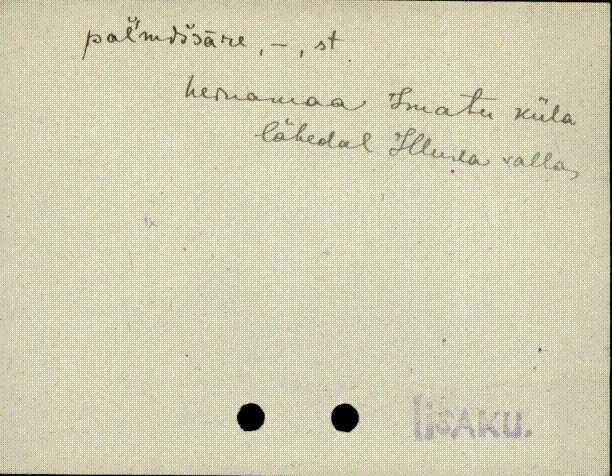 pal̆mdĭsäre, –, st
heinamaa Imatu küla
lähedal Illuka vallas
IISAKU.